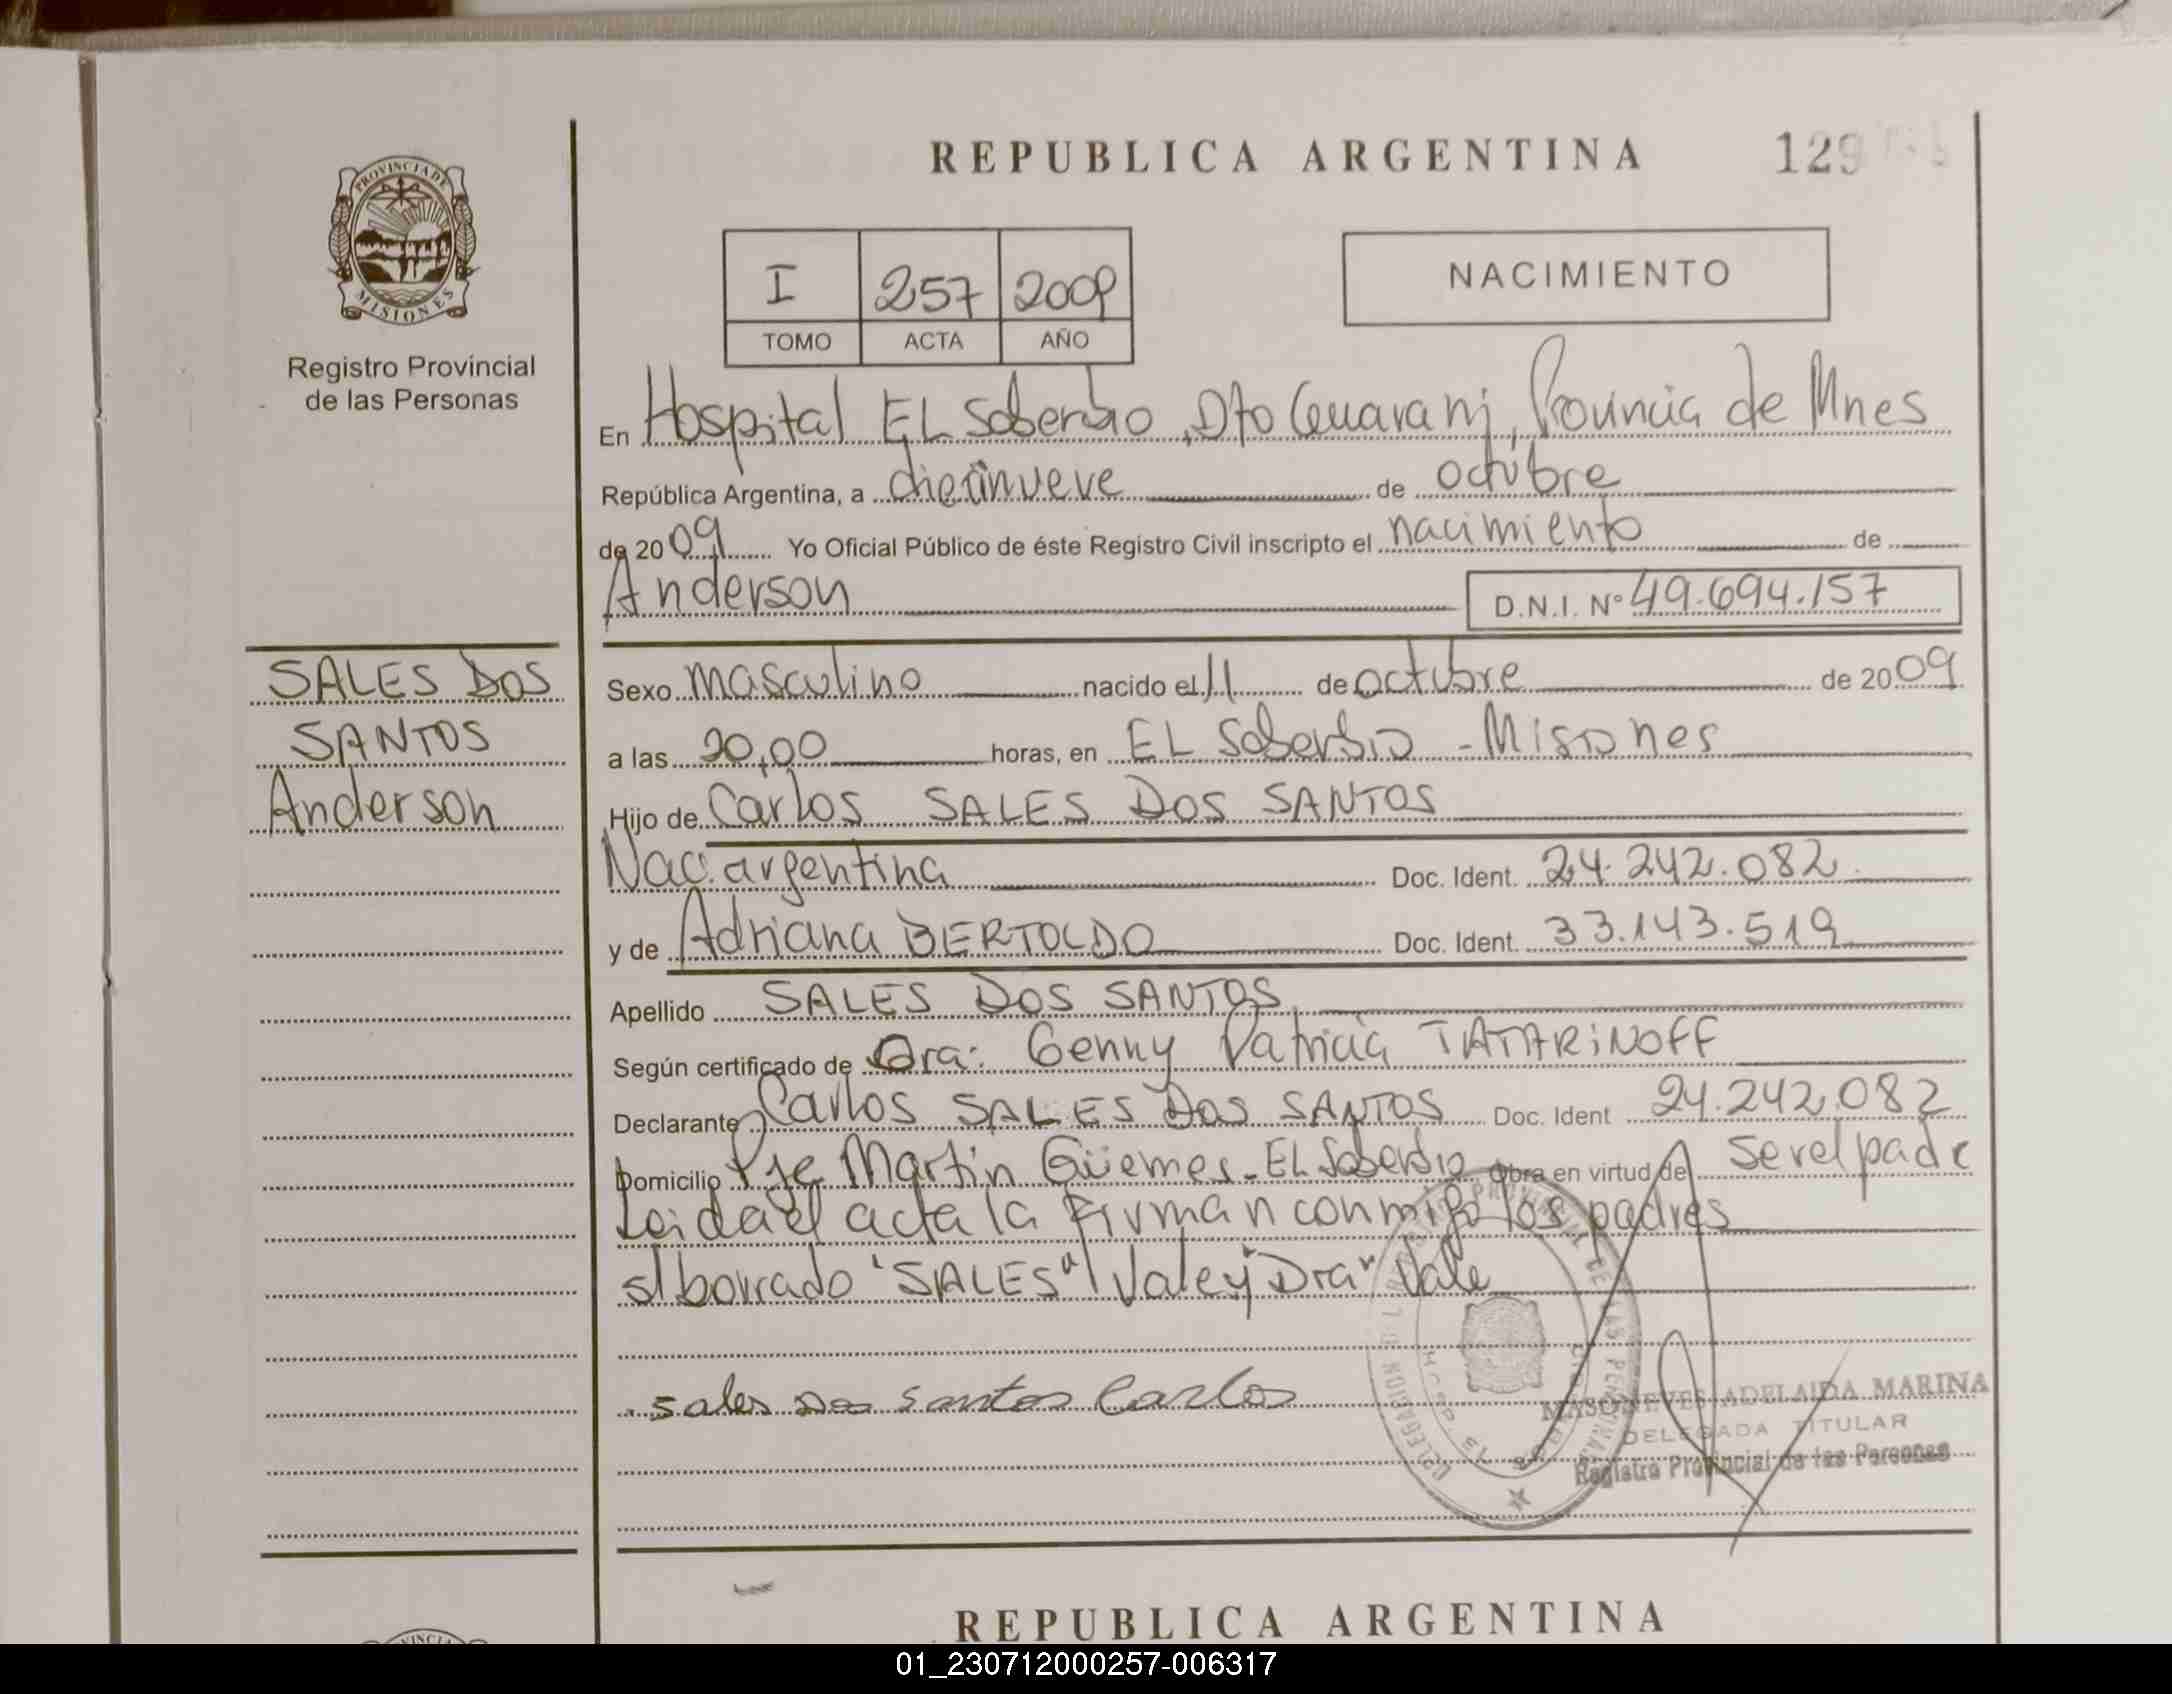 REPUBLICA ARGENTINA
129
PROVINCIA DE
MISIONES
Registro Provincial
de las Personas
I 257 2009
TOMO ACTA AÑO
NACIMIENTO
En Hospital EL Soberbio, Dto Guarani, Provincia de Mnes
República Argentina, a diecinueve de octubre
de 2009 Yo Oficial Público de éste Registro Civil inscripto el nacimiento de
Anderson D.N.I. Nº 49.694.157
SALES DOS
SANTOS
Anderson
Sexo masculino nacido el 11 de octubre de 2009
a las 20,00 horas, en EL Soberbio - Misiones
Hijo de Carlos SALES DOS SANTOS
Nac. argentina Doc. Ident. 24.242.082
y de Adriana BERTOLDO Doc. Ident. 33.143.519
Apellido SALES DOS SANTOS
Según certificado de Dra: Genny Patricia TATARiNOFF
Declarante Carlos SALES DOS SANTOS Doc. Ident 24.242.082
Domicilio Pje Martin Güemes - EL Soberbio Obra en virtud de ser el padre
Leida el acta la firman conmigo los padres
s/borrado "SALES" Vale y "Dra" Vale
Sales Dos Santos Carlos
DELEGACION REGISTRO PROVINCIAL DE LAS PERSONAS
MASONEVES ADELAIDA MARINA
DELEGADA TITULAR
Registro Provincial de las Personas
REPUBLICA ARGENTINA
01_230712000257-006317